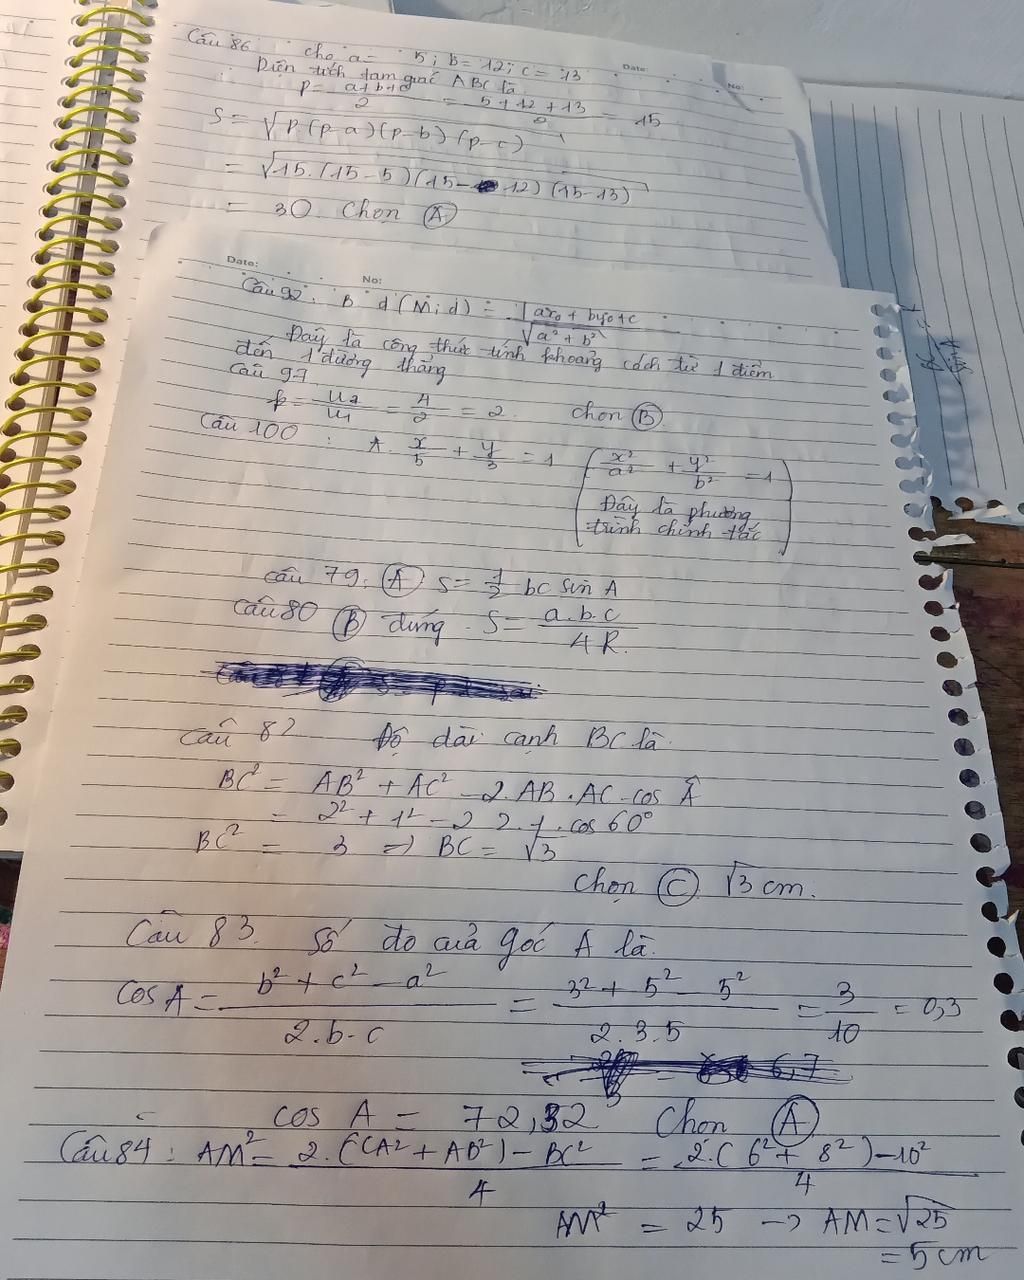 Câu 86 cho a = 5; b = 12; c = 13
Date: No:
Diện tích tam giác ABC là
P = a+b+c / 2 = 5+12+13 / 2 = 15
S = √P(p-a)(p-b)(p-c)
= √15.(15-5)(15-12)(15-13)
= 30. Chọn A
Date: No:
Câu 92. B d(M;d) = |ax₀ + by₀ + c / √a² + b²
Đây là công thức tính khoảng cách từ 1 điểm
đến 1 đường thẳng
Câu 97
k = u₂ / u₁ = 4 / 2 = 2. Chọn B
Câu 100: A. x / 5 + y / 3 = 1 (x² / a² + y² / b² = 1
Đây là phương
trình chính tắc)
Câu 79. A S = 1/2 bc sin A
Câu 80 B đúng. S = a.b.c / 4R.
Câu 82 Độ dài cạnh BC là.
BC² = AB² + AC² - 2 AB.AC.cos Â
= 2² + 1² - 2 2.1.cos 60°
BC² = 3 => BC = √3
Chọn C √3 cm.
Câu 83. Số đo của góc A là.
cos A = b² + c² - a² / 2.b.c = 3² + 5² - 5² / 2.3.5 = 3 / 10 = 0,3
cos A = 72,32 Chọn A
Câu 84: AM² = 2.(CA² + AB²) - BC² / 4 = 2.(6² + 8²) - 10² / 4
AM² = 25 -> AM = √25
= 5 cm